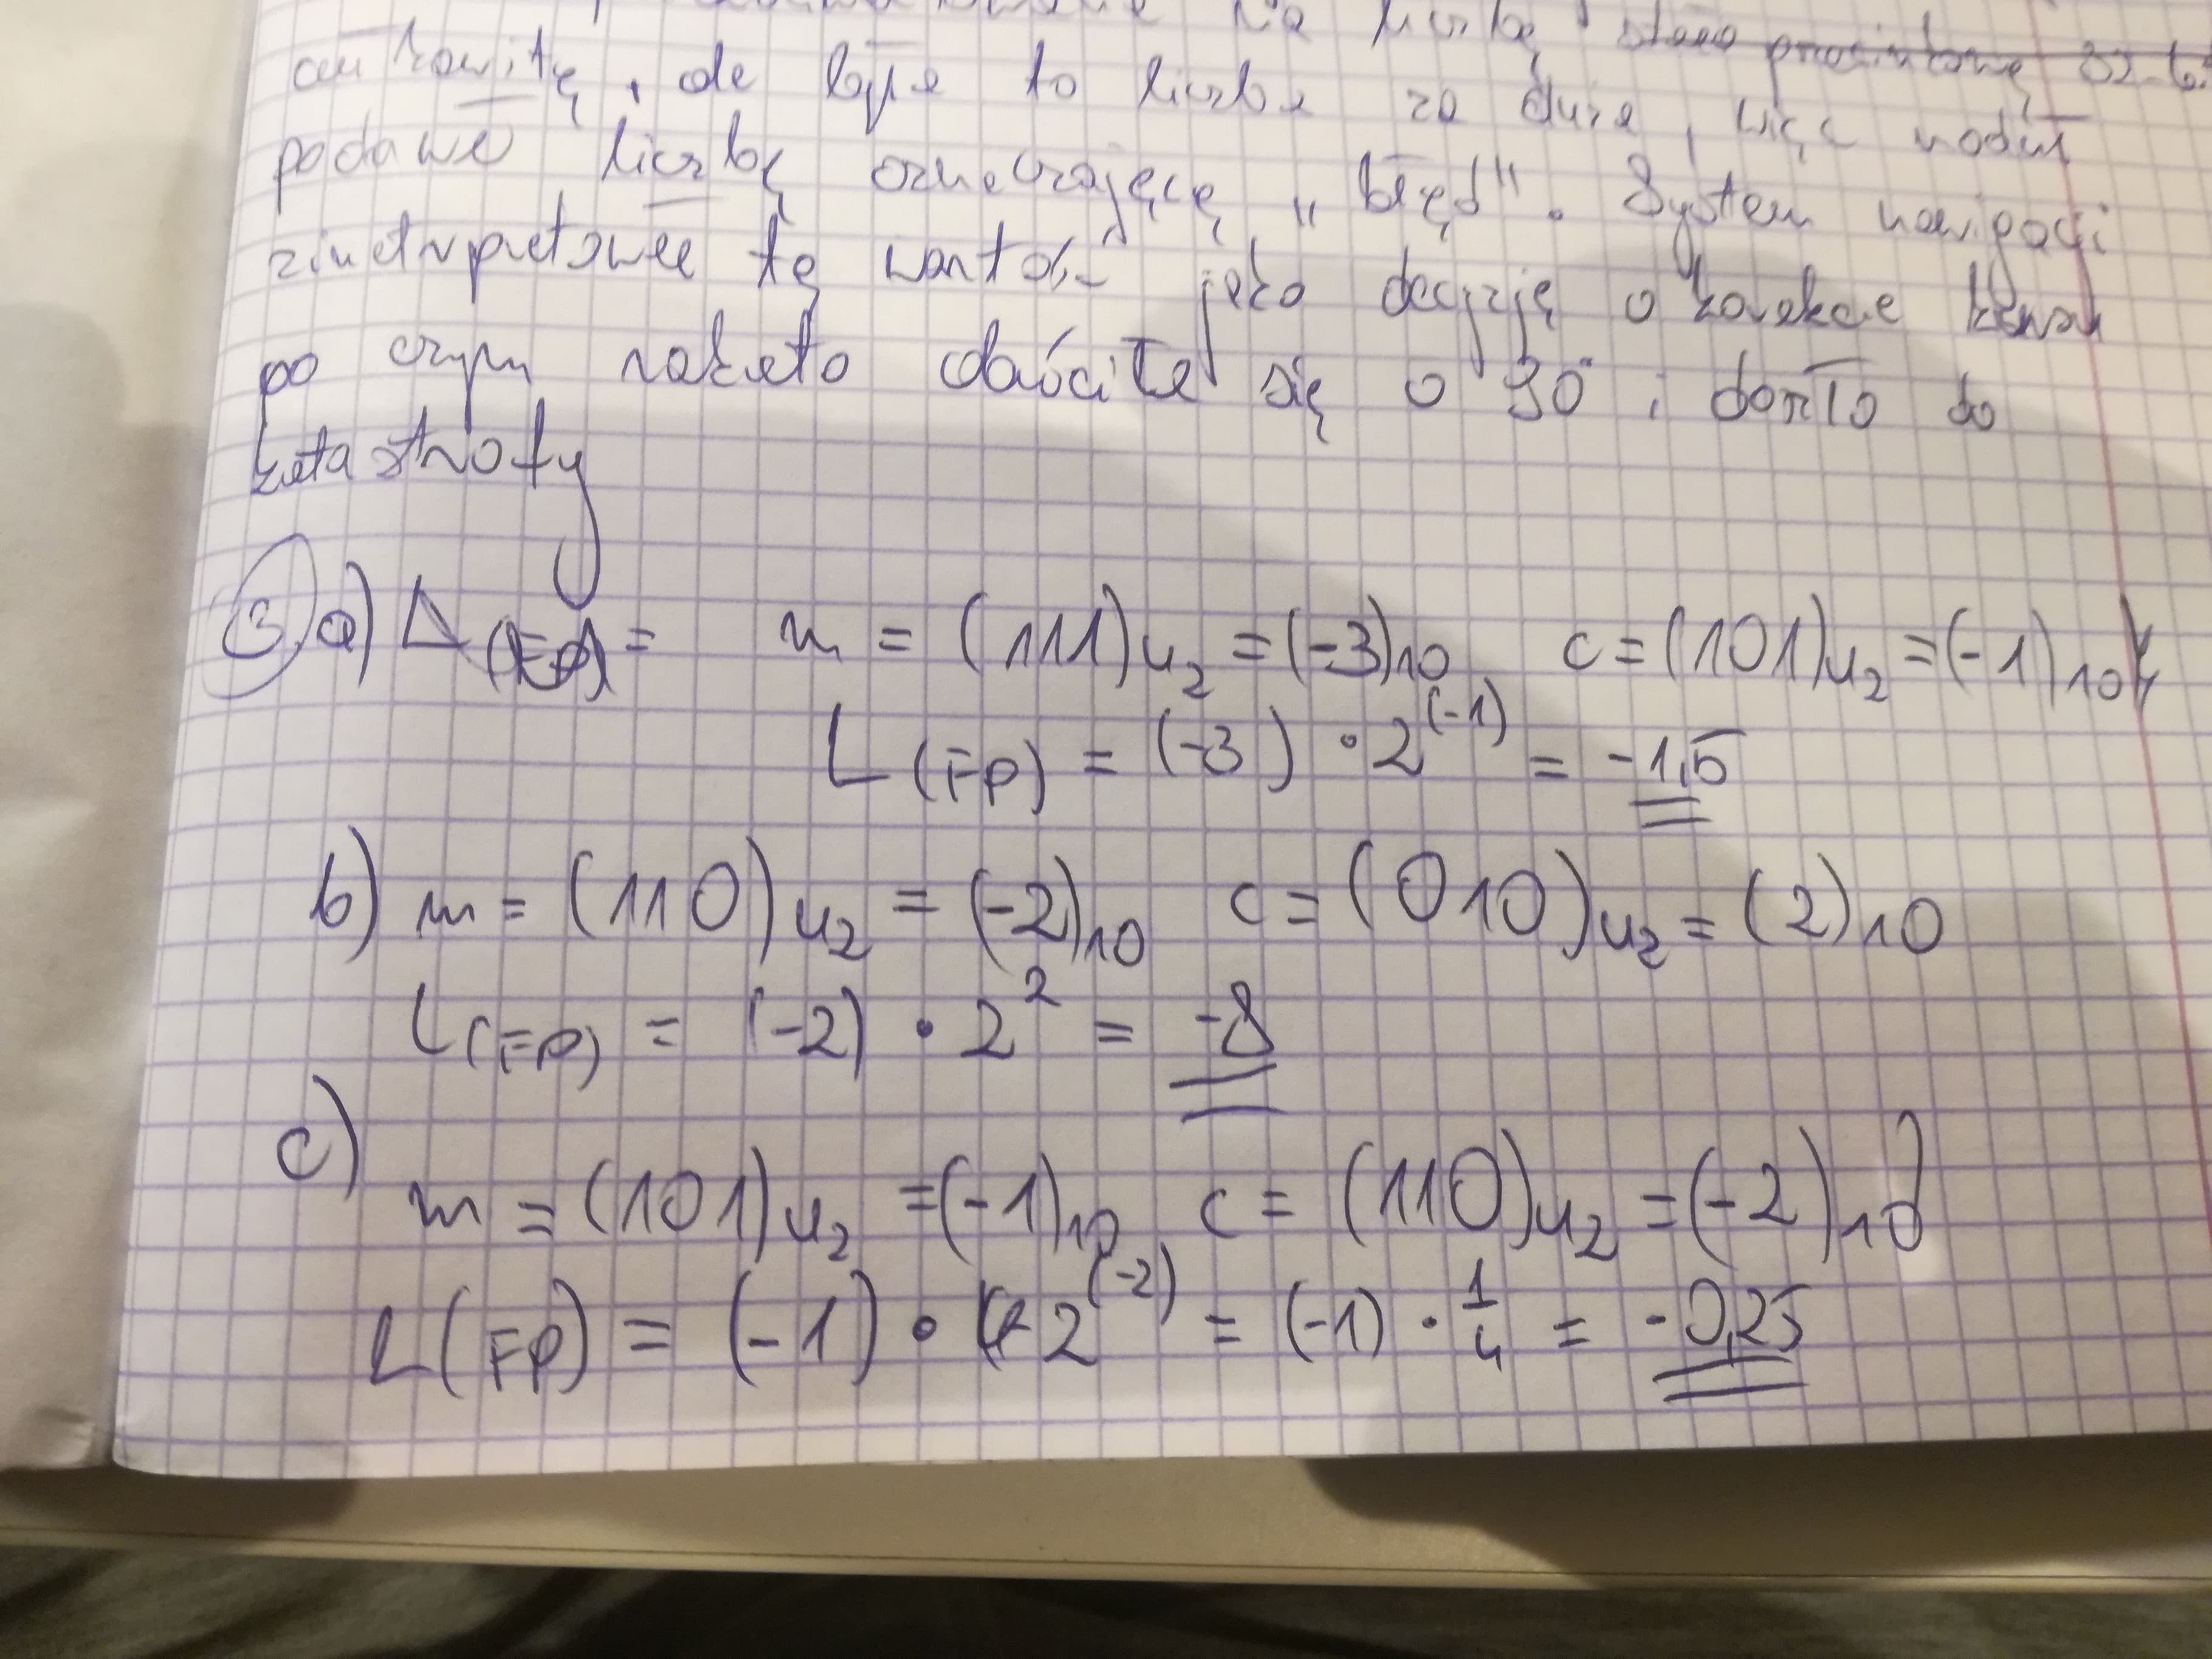 liczbę stało
całkowitą, ale była to liczba za duża, więc moduł
podawał liczbę oznaczającą "błąd". System nawigacji
zinetrpretował tę wartość jako decyzję o korekcie kursu
po czym rakieta obróciła się o 30° i doszło do
katastrofy
3. a) (FP) = m = (111)u2 = (-3)10 c = (101)u2 = (-1)10
L(FP) = (-3) · 2^(-1) = -1,5
b) m = (110)u2 = (-2)10 c = (010)u2 = (2)10
L(FP) = (-2) · 2^2 = -8
c) m = (101)u2 = (-1)10 c = (110)u2 = (-2)10
L(FP) = (-1) · 2^(-2) = (-1) · 1/4 = -0,25